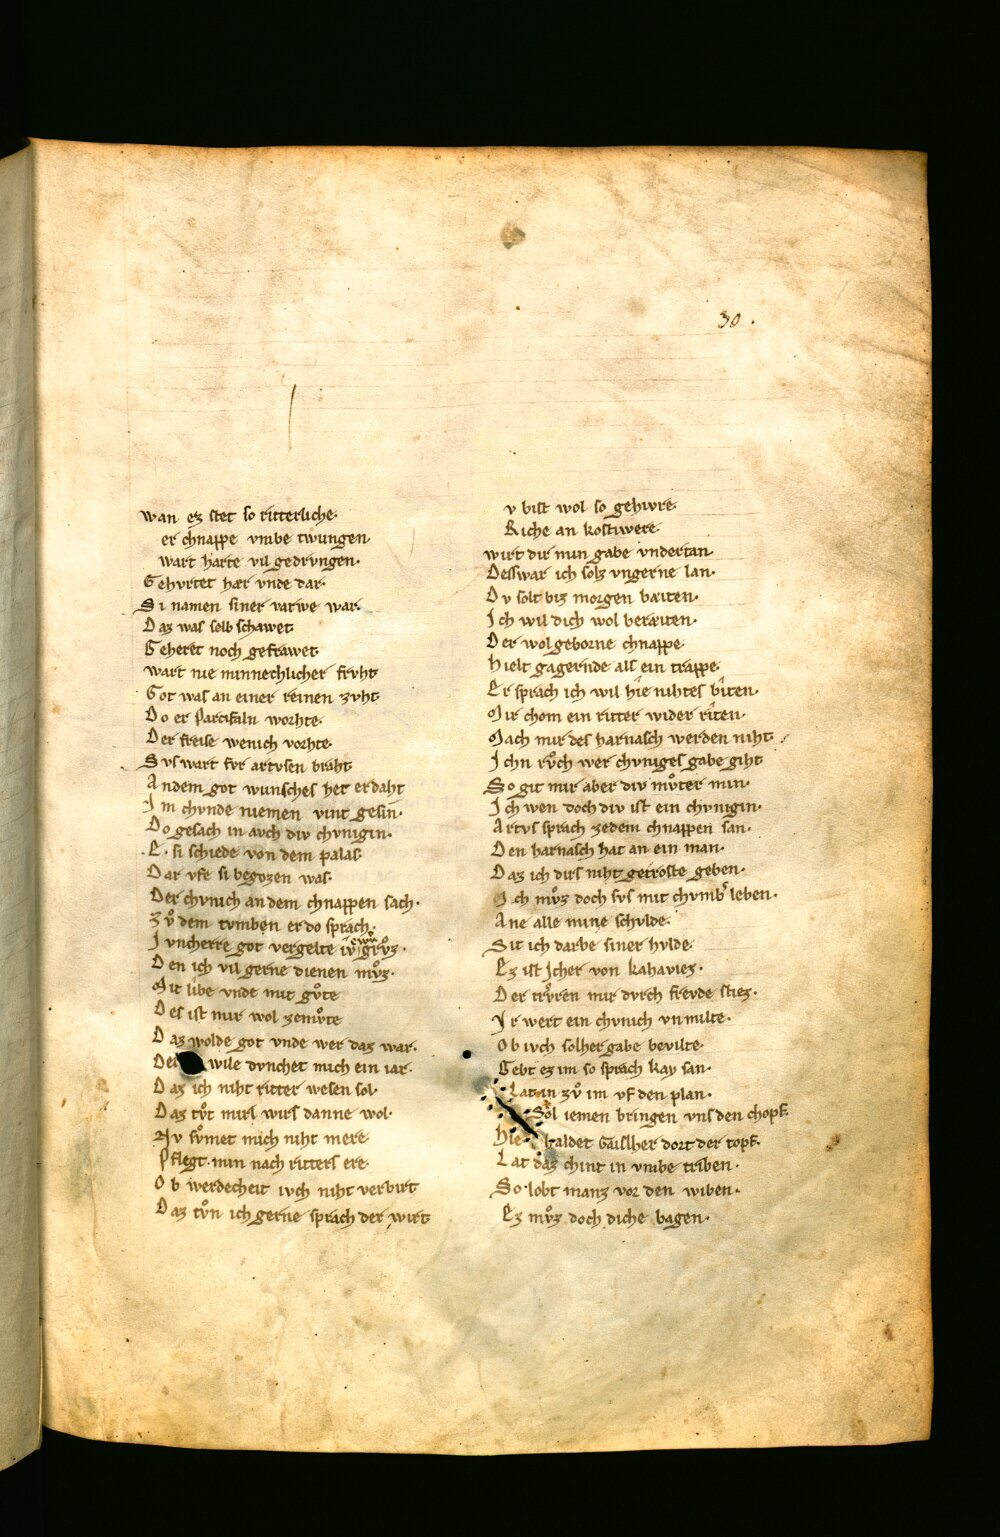 30.
wan ez stet so ritterliche·
er chnappe vmbe twungen
wart harte vil gedrvngen·
Gehvrtet hær vnde dar·
Si namen siner varwe war·
Daz was selb schawet
Geheret noch gefrawet
wart nie minnechlicher frvht
Got was an einer reinen zvht
Do er Parcifaln worhte·
Der freise wenich vorhte·
Svs wart fvr artvsen braht
Andem got wunsches het erdaht
Im chvnde niemen vint gesin·
Do gesach in avch div chvnigin·
E· si schiede von dem palas·
Dar vfe si begozen was·
Der chvnich an dem chnappen sach·
Zvͦ dem tvmben er do sprach·
Ivncherre got vergelte iv ewern grvͦz·
Den ich vil gerne dienen mvͦz·
Mit libe vnde mit gvͦte
Des ist mir wol zemvͦte
Daz wolde got vnde wer daz war·
Der wile dvnchet mich ein iar·
Daz ich niht ritter wesen sol·
Daz tvͦt mirs wirs danne wol·
Nv svͦmet mich niht mere
Pflegt·min nach ritters ere·
Ob werdecheit ivch niht verbirt
Daz tvͦn ich gerne sprach der wirt
v bist wol so gehivre·
Riche an kostiwere·
wirt dir min gabe vndertan·
Desswar ich solz vngerne lan·
Dv solt biz morgen bæiten·
Ich wil dich wol beræiten·
Der wolgeborne chnappe·
hielt gagernde als ein trappe·
Er sprach ich wil hie nihtes biten·
Mir chom ein ritter wider riten·
Mach mir des harnasch werden niht
Ichn rvͦch wer chvniges gabe giht
So git mir aber div mvͦter min·
Ich wen doch div ist ein chvnigin·
Artvs sprach zedem chnappen san·
Den harnasch hat an ein man·
Daz ich dirs niht getroste geben·
Ich mvͦz doch svs mit chvmbͬ leben·
Ane alle mine schvlde·
Sit ich darbe siner hvlde·
Ez ist Icher von kahaviez·
Der trvͦren mir dvrch frevde stiez·
Ir wert ein chvnich vnmilte·
Ob ivch solher gabe bevilte·
Gebt ez im so sprach kay san·
Lat in zvͦ im vf den plan·
Sol iemen bringen vns den chopf·
hie haldet Gaislher dort der topf·
Lat daz chint in vmbe triben·
So·lobt manz vor den wiben·
Ez mvͦz doch diche bagen·